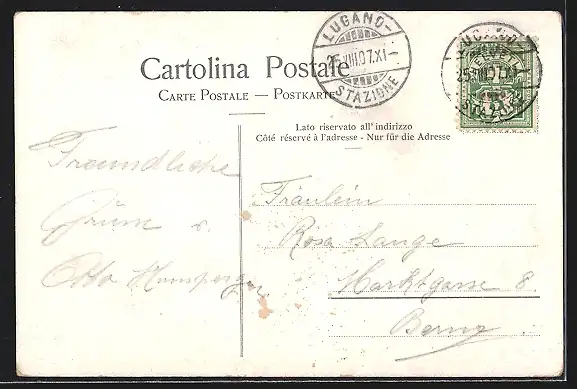 Cartolina Postale
CARTE POSTALE — POSTKARTE
LUGANO-
25.VIII.07.XI-
STAZIONE
LUGANO-
25.VIII.07.XI-
STAZIONE
Lato riservato all' indirizzo
Côté réservé à l'adresse - Nur für die Adresse
Freundliche
Grüsse v.
Otto
Fräulein
Rosa Lange
Marktgasse 8.
Bern